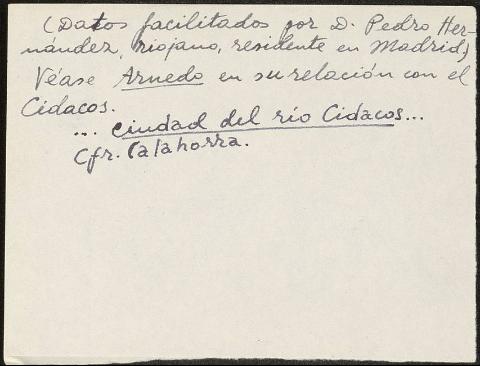 (Datos facilitados por D. Pedro Her-
nández, riojano, residente en Madrid)
Véase Arnedo en su relación con el
Cidacos.
... ciudad del río Cidacos...
Cfr. Calahorra.